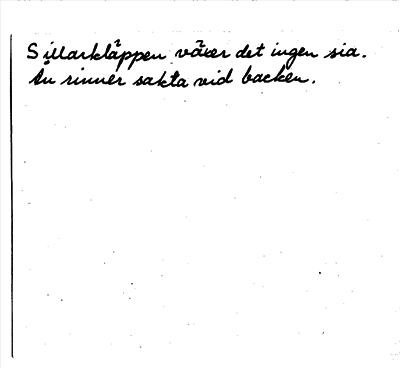 Sillarkläppen växer det ingen sia.
Ån rinner sakta vid backen.